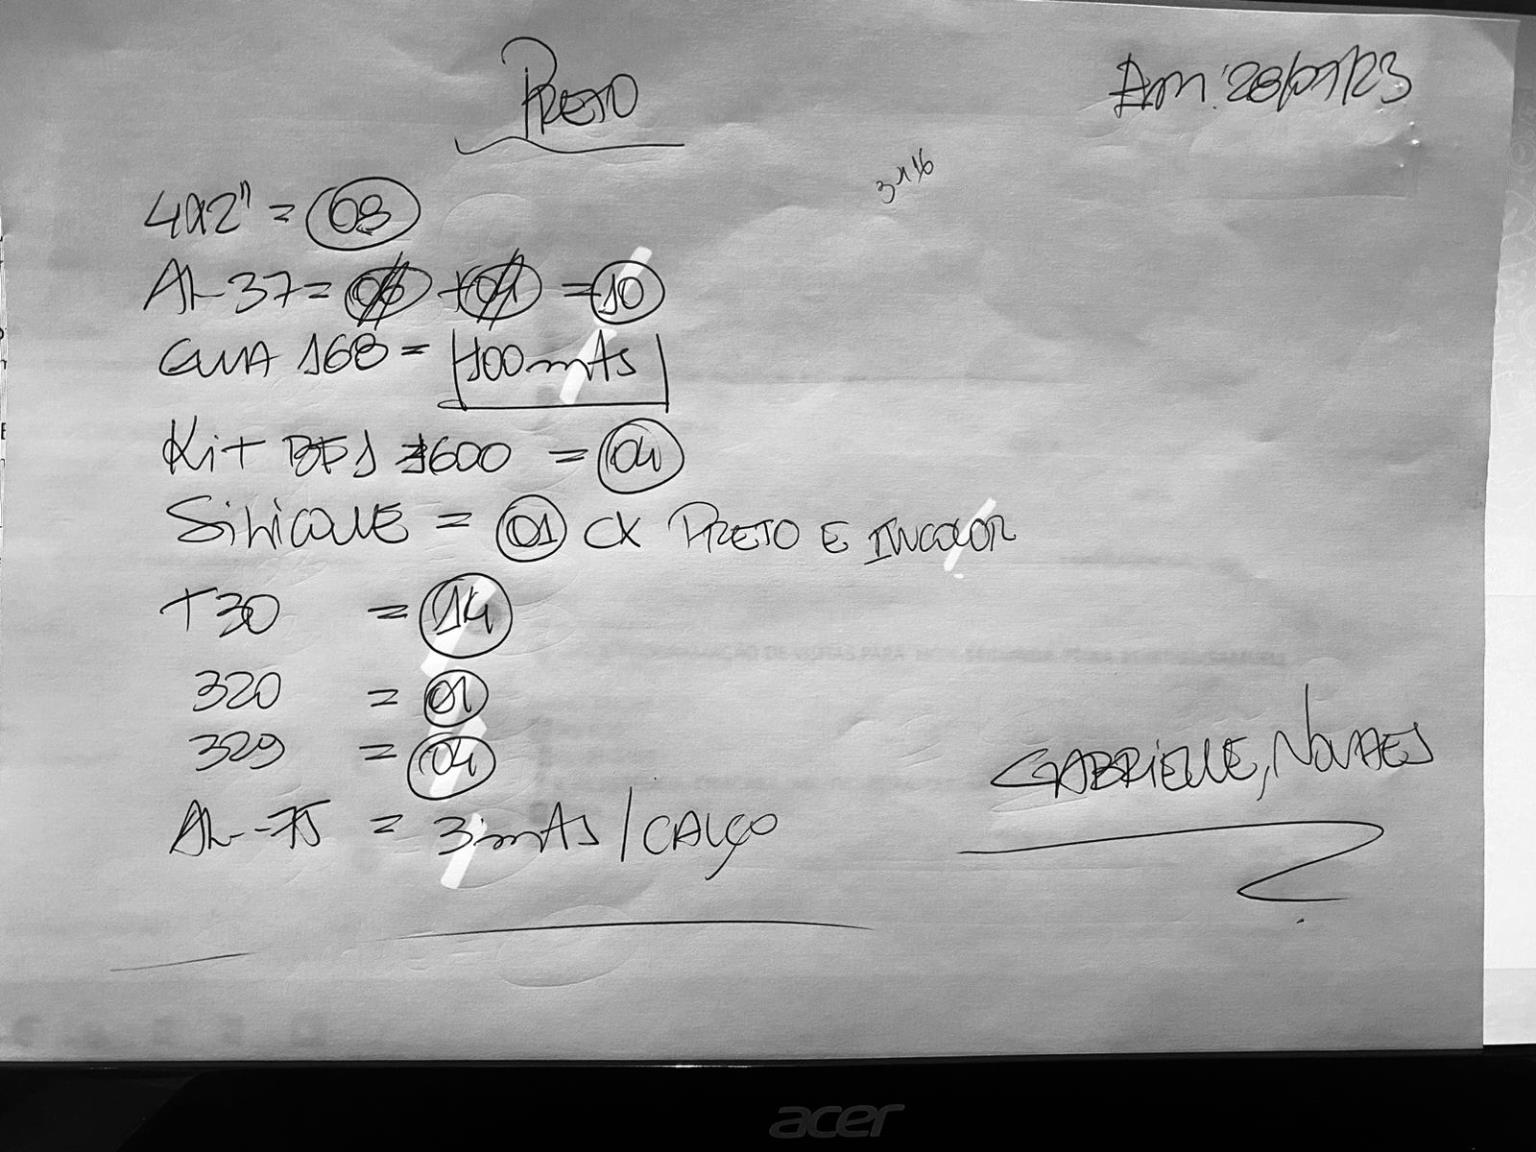 PRETO
Em: 28/01/23
3x16
4x2" = 08
AL-37 = 06 + 04 = 10
GUIA 168 = 100mts
Kit BF1 1600 = 04
SiLiCONE = 01 CX PRETO E INCOLOR
T30 = 14
320 = 01
329 = 04
GABRIELLE, NOVAES
AL-75 = 3mts / CALÇO
acer